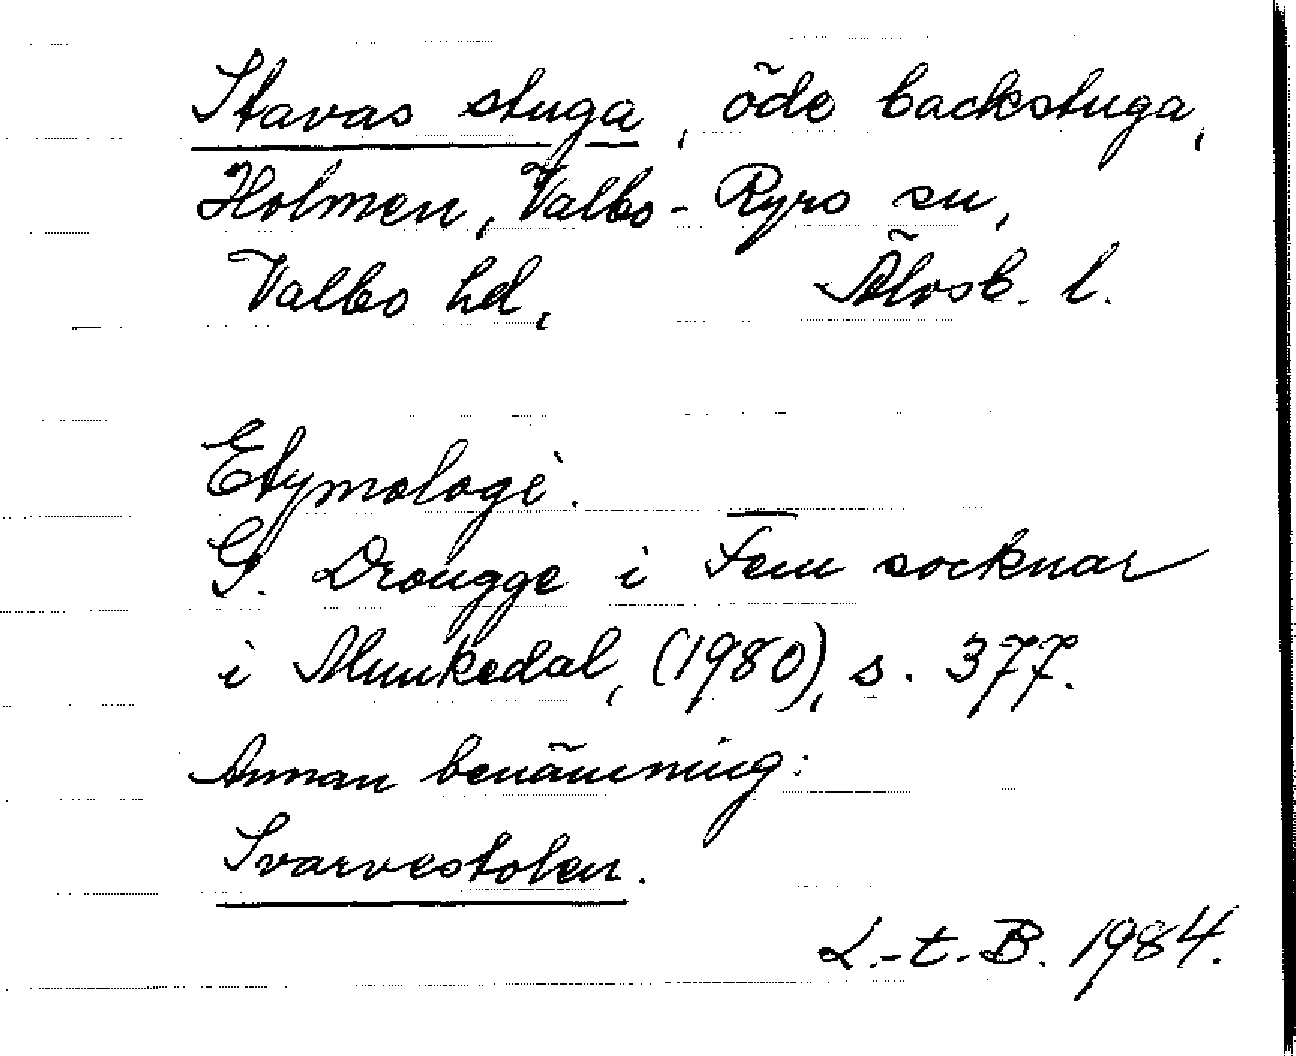 Stavas stuga, öde backstuga,
Holmen, Valbo-Ryrs sn,
Valbo hd, Älvsb. l.
Etymologi.
G. Drougge i Fem socknar
i Munkedal, (1980), s. 377.
Annan benämning:
Svarvestolen.
L.-t. B. 1984.